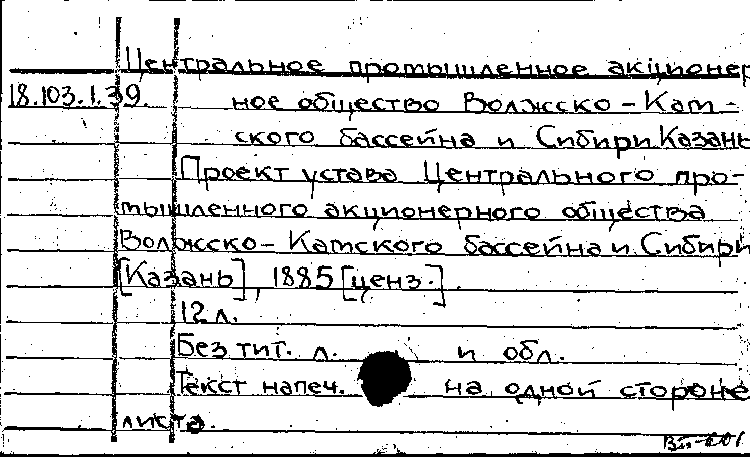 Центральное промышленное акционер
18.103.1.39. ное общество Волжско-Кам-
ского бассейна и Сибири Казань
Проект устава Центрального про-
мышленного акционерного общества
Волжско-Камского бассейна и Сибири
[Казань], 1885 [ценз.].
12 л.
Без тит. л. и обл.
Текст напеч. на одной стороне
листа.